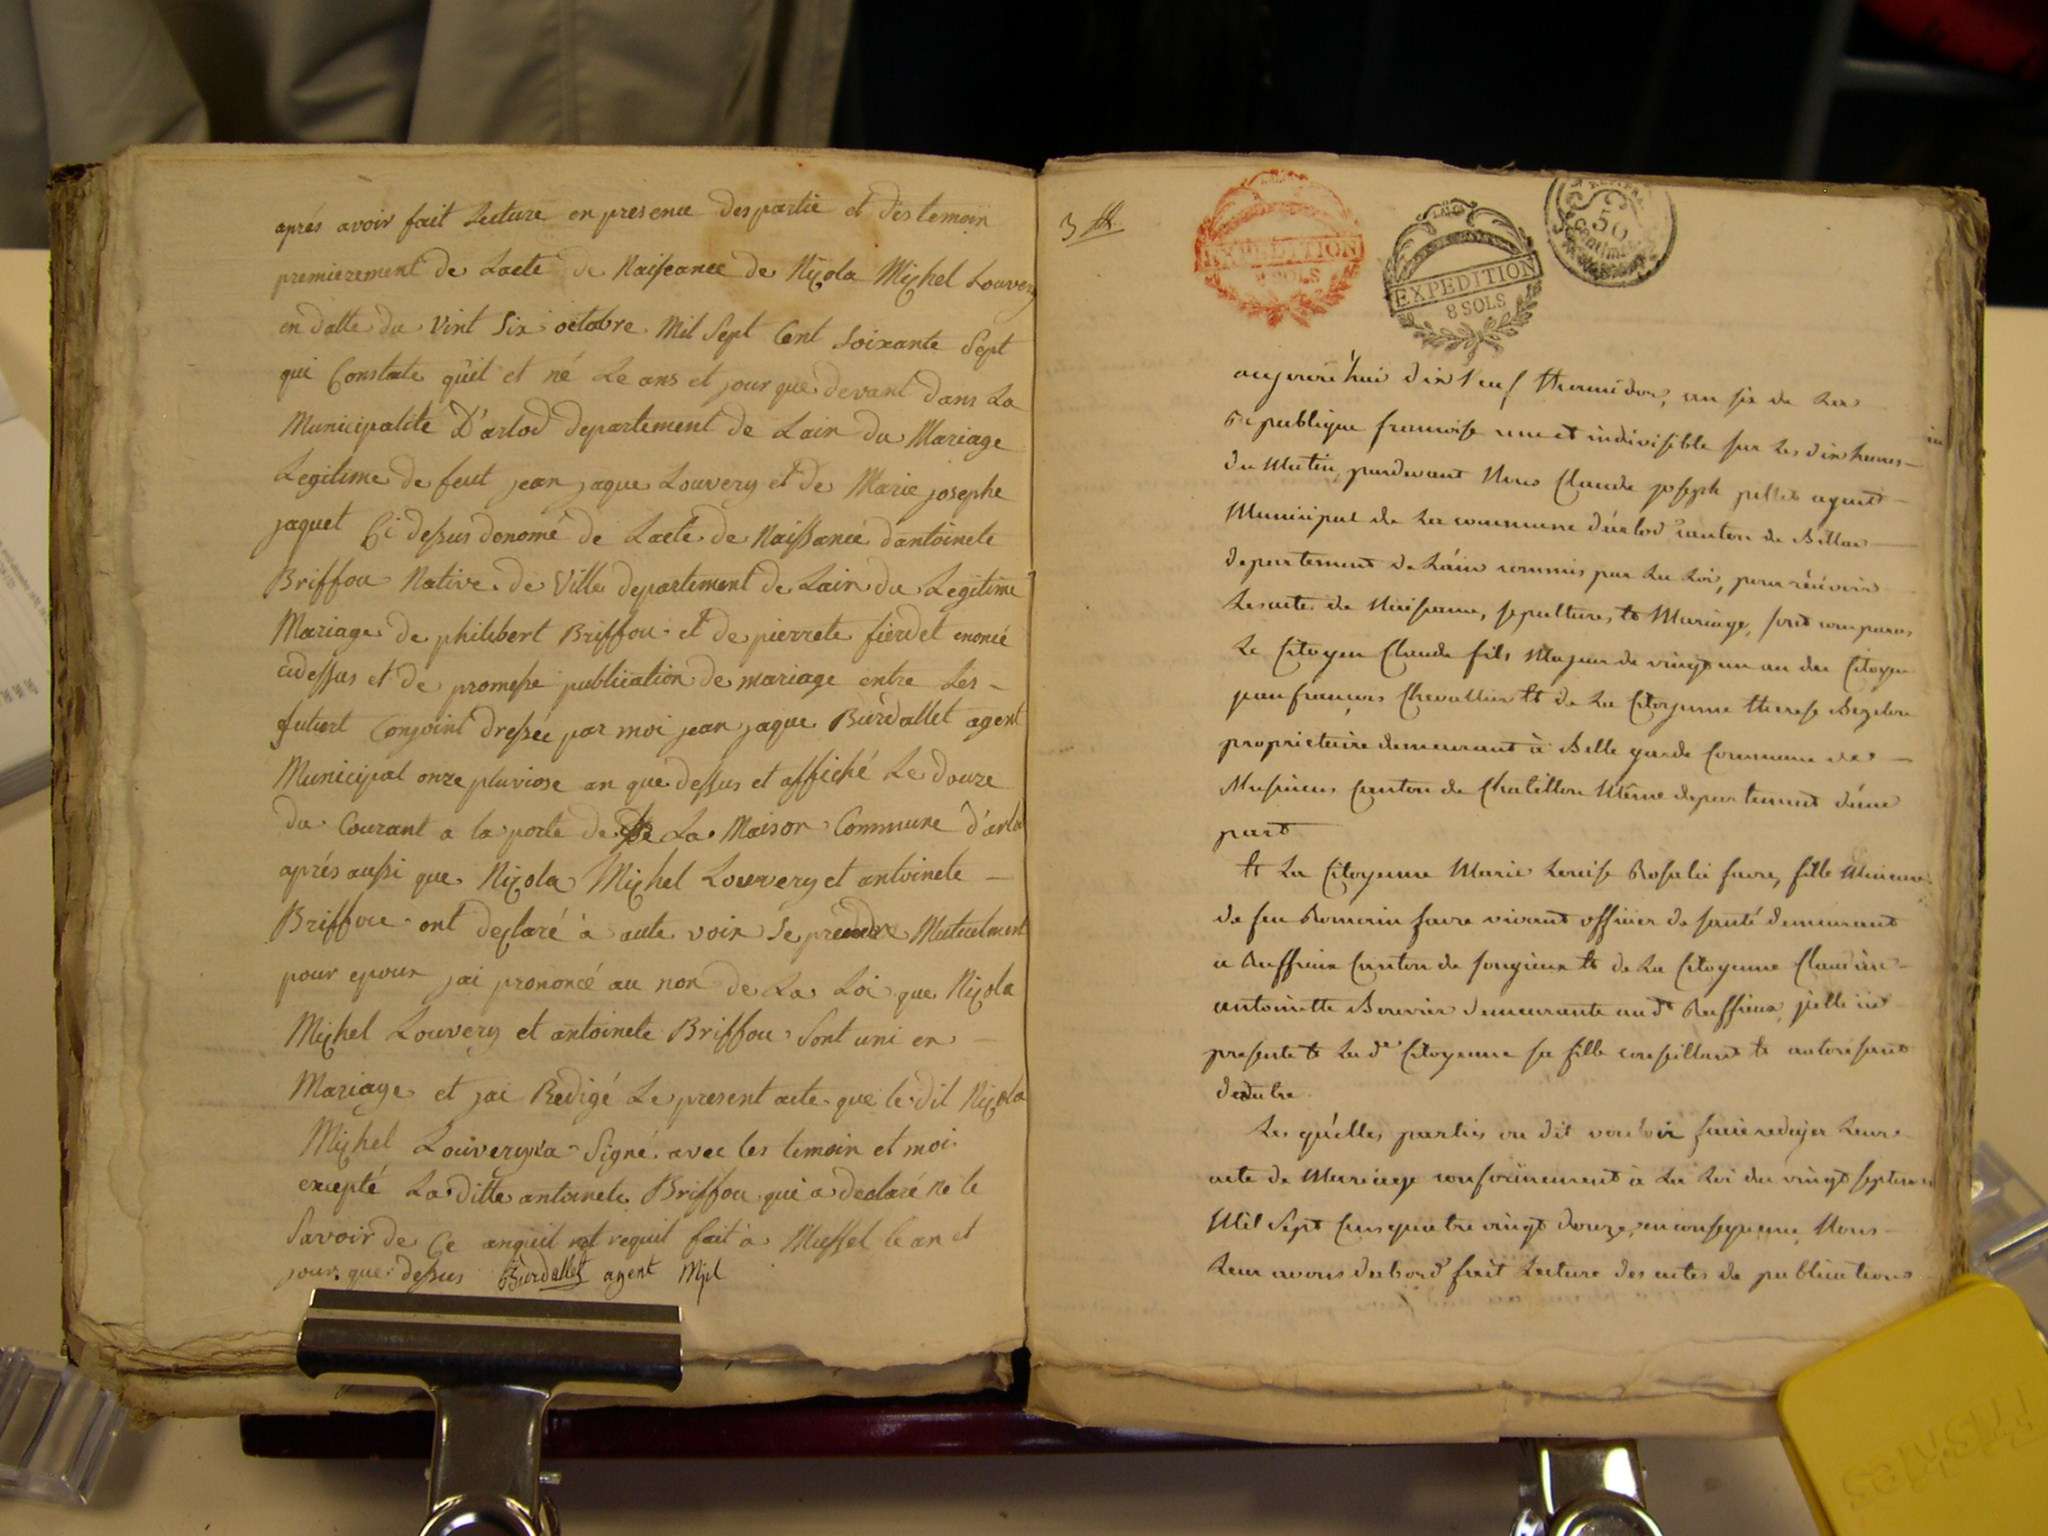 après avoir fait Lecture en presence des partie et des temoin
premierement de Lacte de Naiseance de Nicola Michel Louvery
en datte du Vint Six octobre Mil Sept Cent Soixante Sept
qui Constate quil et né Le ans et jour que devant dans La
Municipalité D'arlod departement de Lain du Mariage
Legitime de feut jean jaque Louvery et de Marie josephe
jaquet Ci dessus denomé de Lacte de Naissance dantoinete
Briffou Native de Ville departement de Lain du Legitime
Mariage de philibert Briffou et de pierrete fierdet enoncé
cidessus et de promesse publication de mariage entre Les
futurt Conjoint dressée par moi jean jaque Burdallet agent
Municipal onze pluviose an que dessus et affiché Le douze
du Courant a la porte de La Maison Commune d'arlo
après aussi que Nicola Michel Louvery et antoinete
Briffou ont declaré à aute voix Se prendre Mutuelment
pour epoux jai prononcé au non de La Loi que Nicola
Michel Louvery et antoinete Briffou Sont uni en
Mariage et jai Redigé Le present acte que le dit Nicola
Michel Louvery a Signé avec les temoin et moi
excepté La ditte antoinete Briffou qui a declaré ne le
Savoir de Ce requit fait à Mussel le an et
jour que dessus Burdallet agent Mpl
3
EXPEDITION
8 SOLS
EXPEDITION
8 SOLS
50
Centimes
aujourd'hui dix neuf thermidor, an six de La
Republique francoise une et indivisible sur Les dix heures
du Matin, pardevant Nous Claude joseph pillet agent
Municipal de La commune d'arlod canton de Billiat
departement de L'ain commis par La Loi, pour récévoir
Les actes de Naissance, sepultures, et Mariage, sont comparus
Le Citoyen Claude fils Majeur de vingt un an du Citoyen
jean françois Chevallier et de La Citoyenne therese
proprietaire demeurant à Belle garde Commune de
Musinens Canton de Chatillon Même departement d'une
part
et La Citoyenne Marie Louise Rosalie favre, fille Mineure
de feu Romain favre vivant officier de santé demeurant
a Ruffieux Canton de songieux et de La Citoyenne Claudine
antoinette demeurante aud Ruffieux, jcelle ici
presente et La de Citoyenne sa fille conseillant et autorisant
d'autre
Les qu'elles parties on dit vouloir faire rediger Leur
acte de Mariage conformement à La Loi du vingt septembre
Mil Sept Cens quatre vingt douze, en consequence Nous
Leur avons dabord fait Lecture des actes de publications